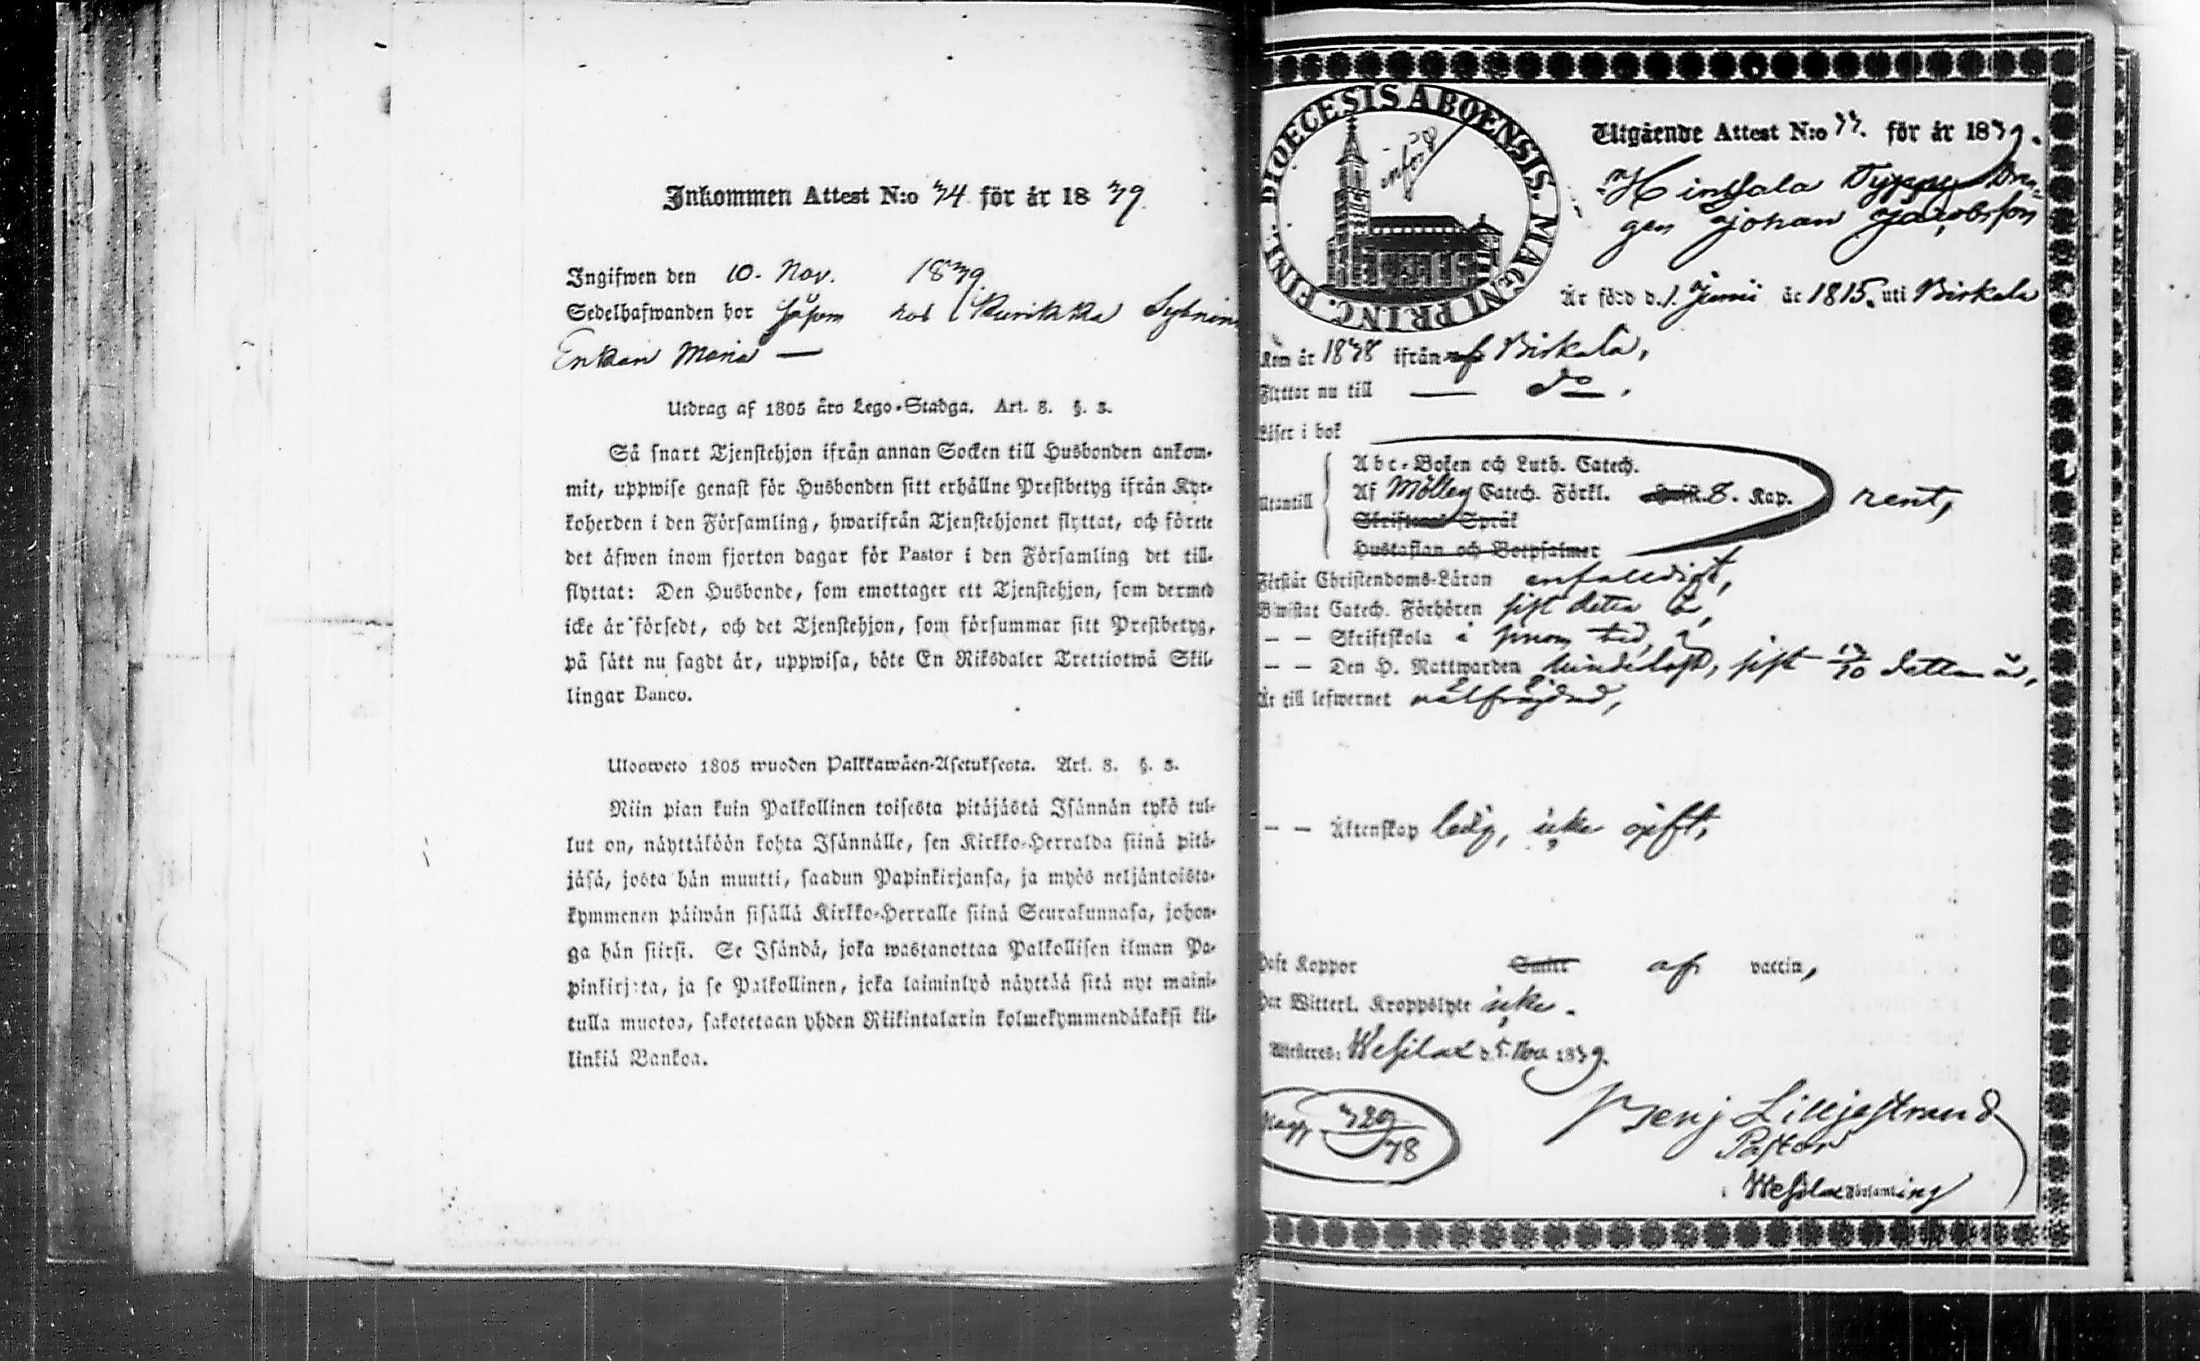 Inkommen Attest N:o 74 för år 1839
Ingifwen den 10. Nov. 1839.
Sedelhafwanden bor såsom hos Kurikka Sytning
Enkan Maria —
Utdrag af 1805 års Lego-Stadga. Art. 8. §. 3.
Så snart Tjenstehjon ifrån annan Socken till Husbonden ankom-
mit, uppwise genast för Husbonden sitt erhållne Prestbetyg ifrån Kyr-
koherden i den Församling, hwarifrån Tjenstehjonet flyttat, och förete
det äfwen inom fjorton dagar för Pastor i den Församling det till-
flyttat: Den Husbonde, som emottager ett Tjenstehjon, som dermed
icke är försedt, och det Tjenstehjon, som försummar sitt Prestbetyg,
på sätt nu sagdt är, uppwisa, böte En Riksdaler Trettiotwå Skil-
lingar Banco.
Ulosweto 1805 wuoden Palkkawäen-Asetuksesta. Art. 8. §. 3.
Niin pian kuin Palkollinen toisesta pitäjästä Isännän tykö tul-
lut on, näyttäköön kohta Isännälle, sen Kirkko-Herralda siinä pitä-
jäsä, josta hän muutti, saadun Papinkirjansa, ja myös neljäntoista-
kymmenen päiwän sisällä Kirkko-Herralle siinä Seurakunnasa, johon-
ga hän siirsi. Se Isändä, joka wastanottaa Palkollisen ilman Pa-
pinkirjata, ja se Palkollinen, joka laiminlyö näyttää sitä nyt maini-
tulla muotoa, sakotetaan yhden Riikintalarin kolmekymmendäkaksi kil-
linkiä Bankoa.
DIOECESIS ABOENSIS. MAGNI PRINC. FINL.
införd
Utgående Attest N:o 77. för år 1839.
Hinsala Dyppy Drän-
gen Johan Jacobsson
Är född d. 1. Junii år 1815. uti Birkala
Kom år 1838 ifrån Birkala,
Flyttar nu till — do.
Läser i bok
Abc-Boken och Luth. Catech.
Utantill Af Catech. Förkl. 8. Kap. rent,
Skriftenes Språk
Hustaflan och Botpsalmer
Förstår Christendoms-Läran enfalldigt,
Biwistat Catech. Förhören sist detta år,
— — Skriftskola i tid,
— — Den H. Nattwarden sist detta år,
Är till lefwernet wälfrägdad,
— — Äktenskap ledig, icke gift,
Haft Koppor af vaccin,
Har Witterl. Kroppslyte icke.
Attesteras: Wesilax d. 5. Nov. 1839.
Benj Lilljestrand
Pastor
i Wesilax Församling
329
78